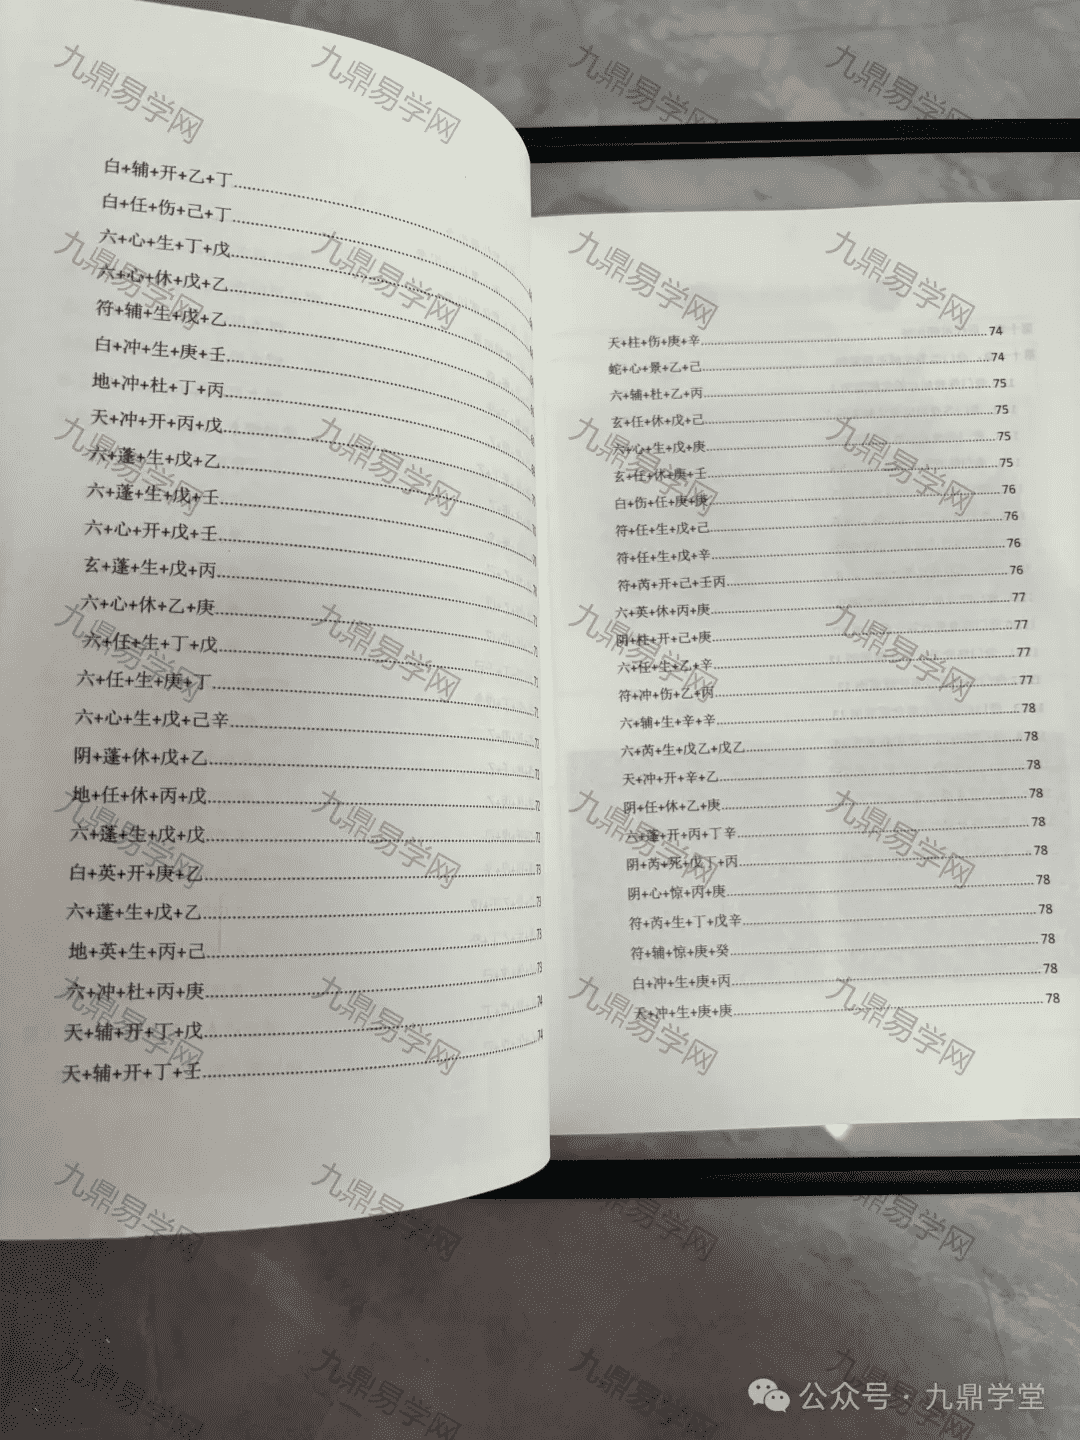 白+辅+开+乙+丁
白+任+伤+己+丁
六+心+生+丁+戊
六+心+休+戊+乙
符+辅+生+戊+乙
白+冲+生+庚+壬
地+冲+杜+丁+丙
天+冲+开+丙+戊
六+蓬+生+戊+乙
六+蓬+生+戊+壬
六+心+开+戊+壬
玄+蓬+生+戊+丙
六+心+休+乙+庚
六+任+生+丁+戊
六+任+生+庚+丁
六+心+生+戊+己辛 72
阴+蓬+休+戊+乙 72
地+任+休+丙+戊 72
六+蓬+生+戊+戊
白+英+开+庚+乙 73
六+蓬+生+戊+乙 73
地+英+生+丙+己 73
六+冲+杜+丙+庚 73
天+辅+开+丁+戊 74
天+辅+开+丁+壬 74
天+柱+伤+庚+辛 74
蛇+心+景+乙+己 74
六+辅+杜+乙+丙 75
玄+任+休+戊+己 75
六+心+生+戊+庚 75
玄+任+休+庚+壬 75
白+伤+任+庚+庚 76
符+任+生+戊+己 76
符+任+生+戊+辛 76
符+芮+开+己+壬丙 76
六+英+休+丙+庚 77
阴+柱+开+己+庚 77
六+任+生+乙+辛 77
符+冲+伤+乙+丙 77
六+辅+生+辛+辛 78
六+芮+生+戊乙+戊乙 78
天+冲+开+辛+乙 78
阴+任+休+乙+庚 78
六+蓬+开+丙+丁辛 78
阴+芮+死+戊丁+丙 78
阴+心+惊+丙+庚 78
符+芮+生+丁+戊辛 78
符+辅+惊+庚+癸 78
白+冲+生+庚+丙 78
天+冲+生+庚+庚 78
九鼎易学网
公众号·九鼎学堂